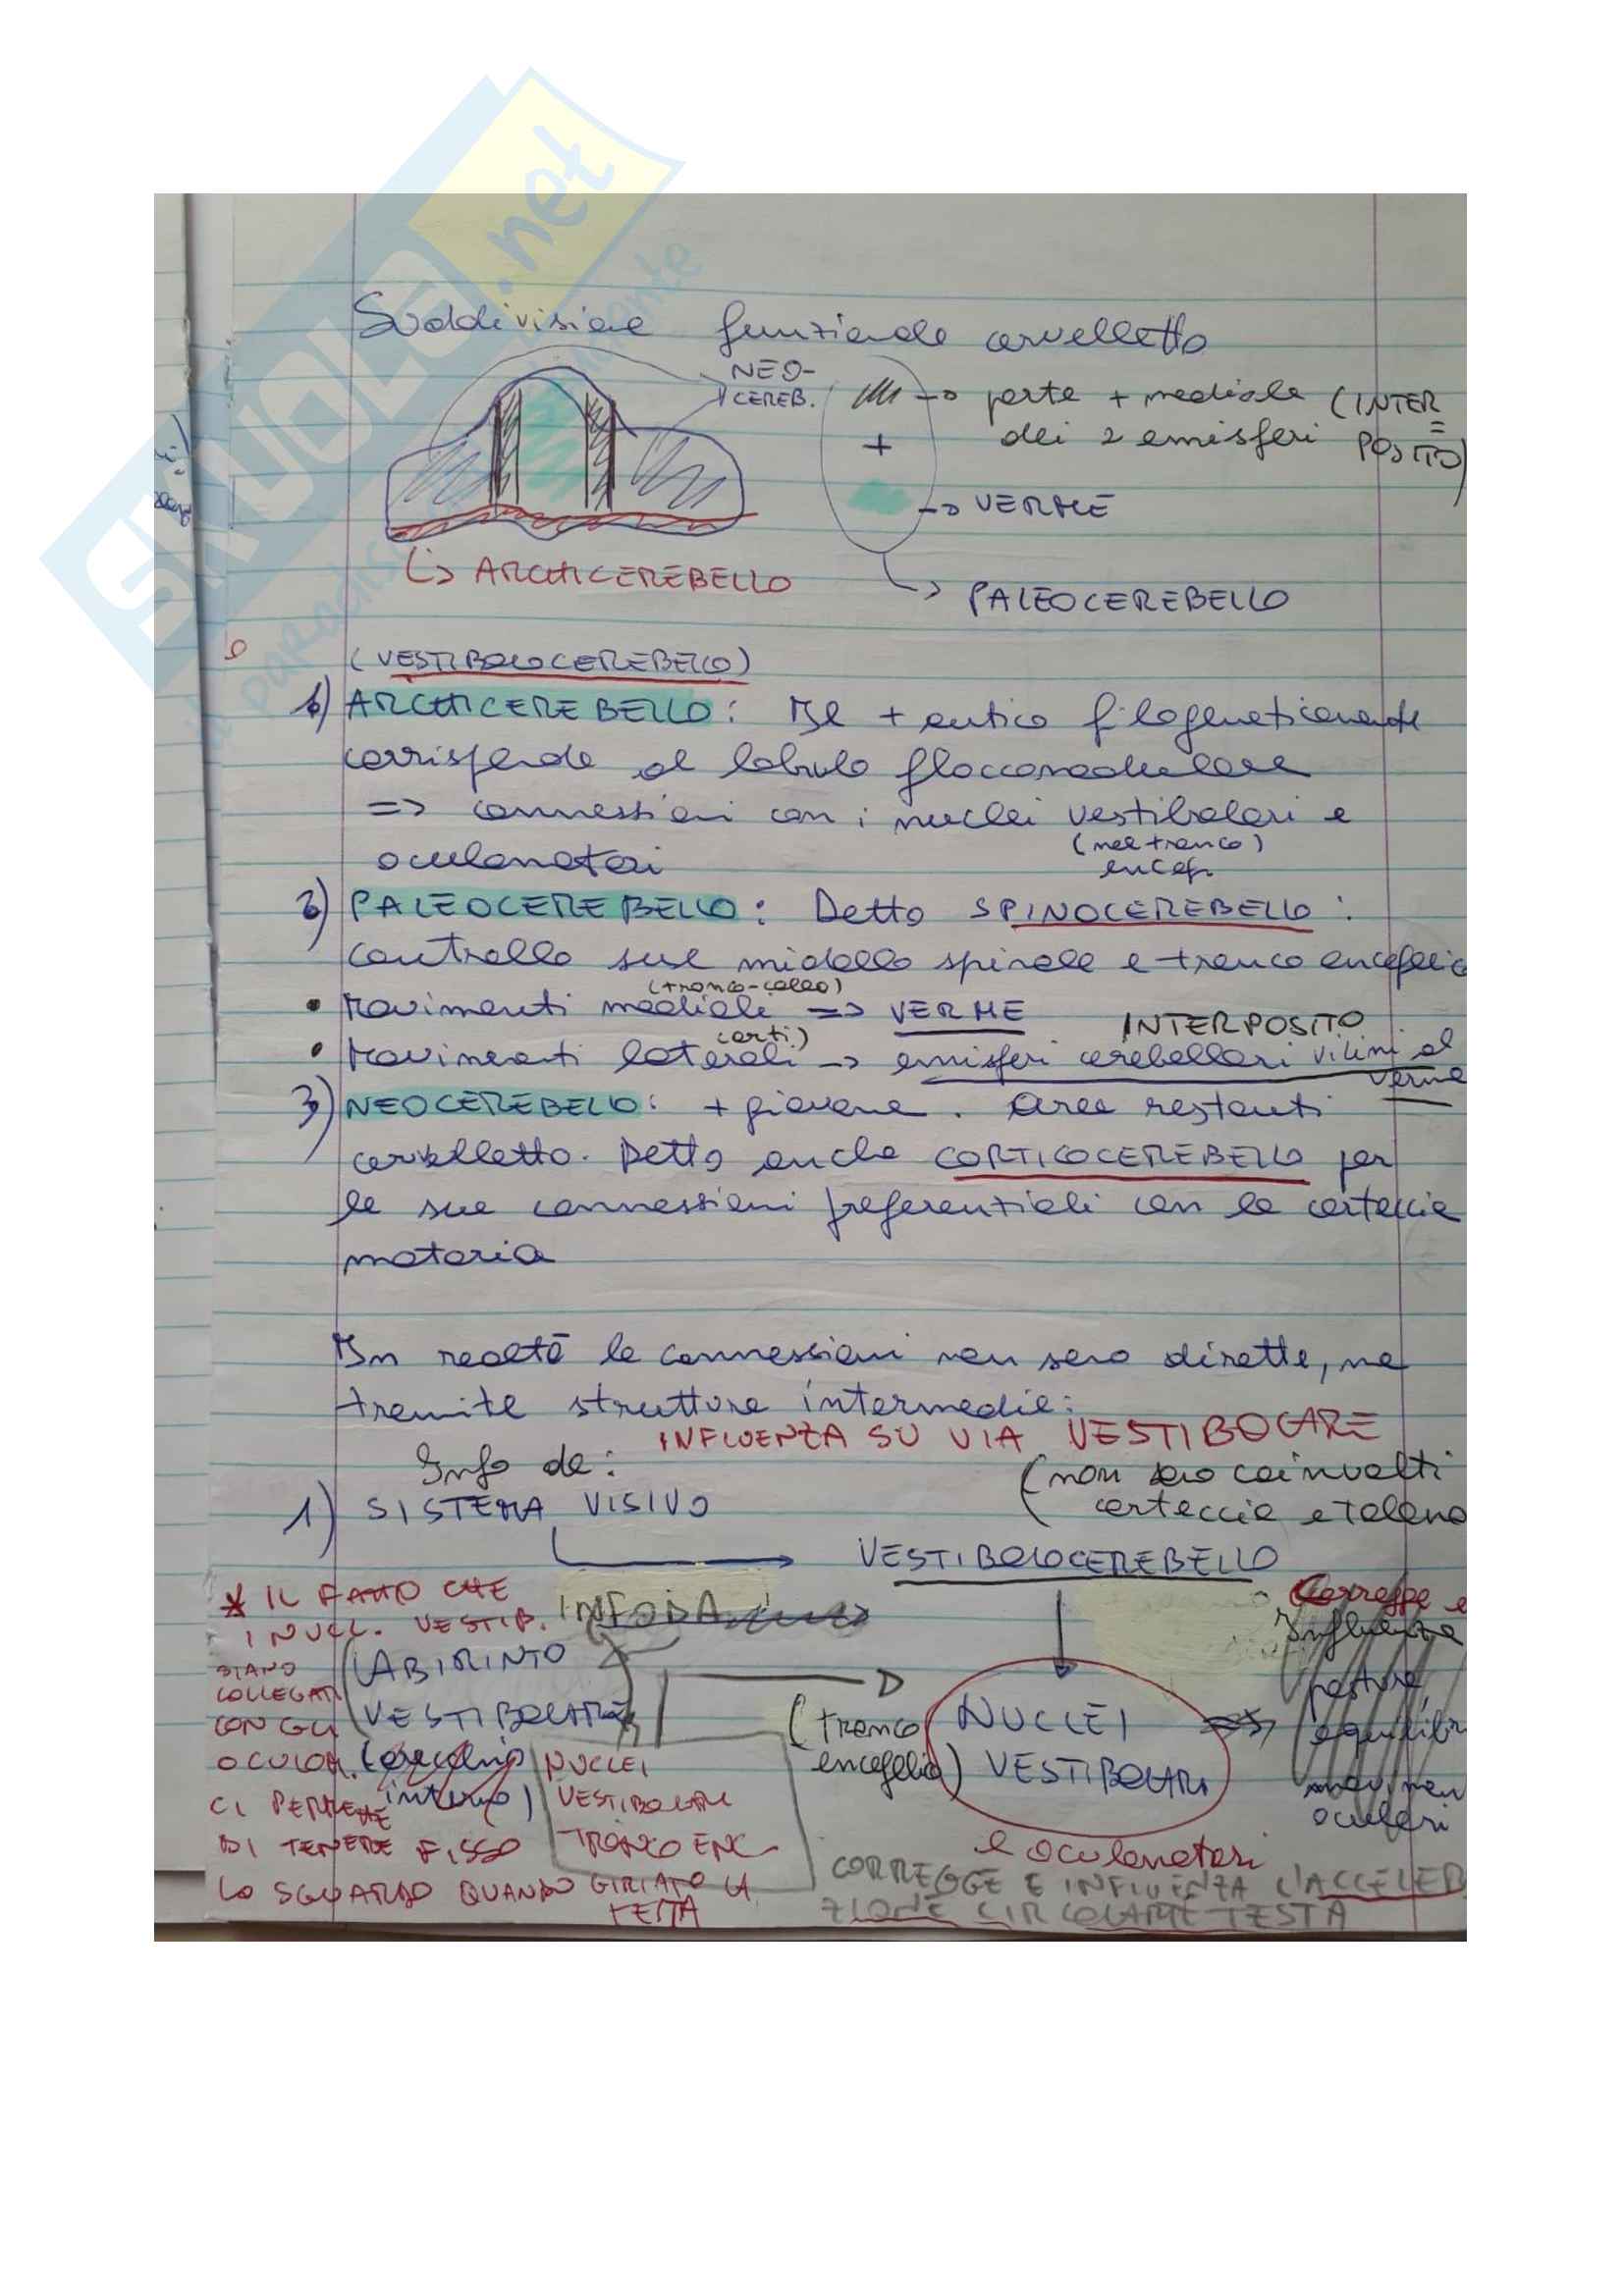 SKUOLA.net
Suddivisione funzionale cervelletto
NEO-
CEREB.
→ parte + mediale (INTER=
dei 2 emisferi POSITO)
+
→ VERME
↳ ARCHICEREBELLO
→ PALEOCEREBELLO
(VESTIBOLOCEREBELLO)
1) ARCHICEREBELLO: Il + antico filogeneticamente
corrisponde al lobulo flocconodulare
=> connessioni con i nuclei vestibolari e
(nel tronco)
encef.
oculomotori
2) PALEOCEREBELLO: Detto SPINOCEREBELLO:
controllo sul midollo spinale e tronco encefalic
(tronco-collo)
• Movimenti mediali => VERME
(arti) INTERPOSITO
• Movimenti laterali → emisferi cerebellari vicini al
verme
3) NEOCEREBELLO: + giovane. Aree restanti
cervelletto. Detto anche CORTICOCEREBELLO per
le sue connessioni preferenziali con la corteccia
motoria
In realtà le connessioni non sono dirette, ma
tramite strutture intermedie:
INFLUENZA SU VIA VESTIBOLARE
Info da:
(non sono coinvolti
corteccia e talamo
1) SISTEMA VISIVO
→ VESTIBOLOCEREBELLO
* IL FATTO CHE
I NUCL. VESTIB.
SIANO
COLLEGATI
CON GLI
OCULOM.
CI PERMETTE
DI TENERE FISSO
LO SGUARDO QUANDO GIRIAMO LA
TESTA
INFO DA
LABIRINTO
VESTIBOLARE
(orecchio
interno)
NUCLEI
VESTIBOLARI
TRONCO ENC
(tronco
encefalico)
NUCLEI
VESTIBOLARI
e oculomotori
Corregge e
Influenza
postura,
equilibr
movimen
oculari
CORREGGE E INFLUENZA L'ACCELER
ZIONE CIRCOLARE TESTA